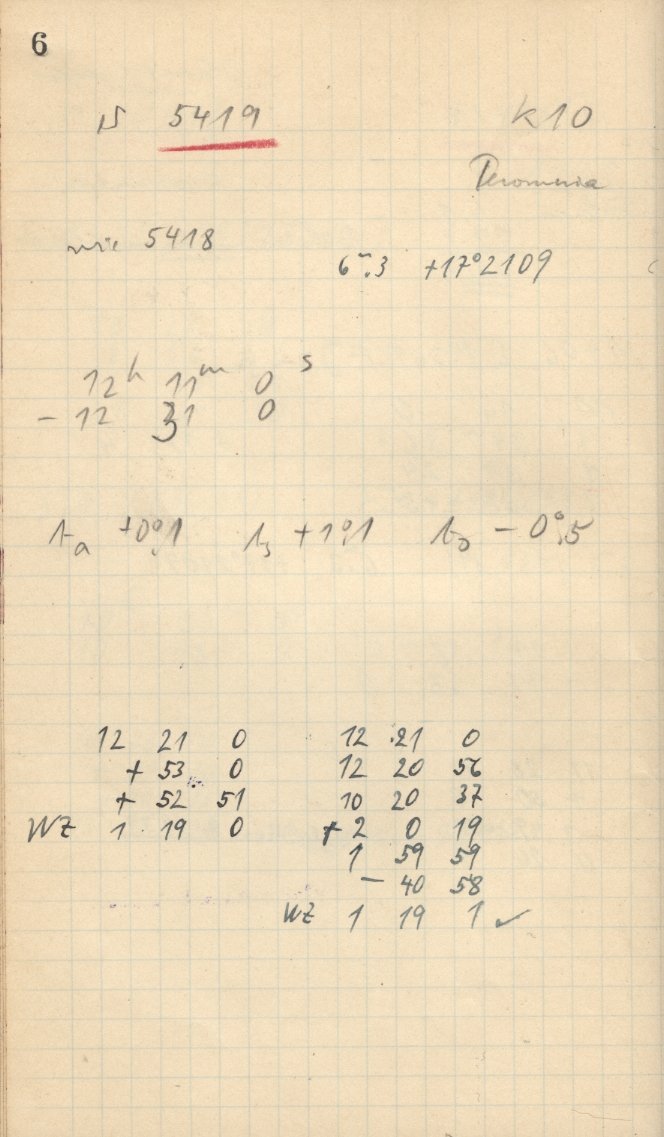 6
N 5419 K10
wie 5418
6ᵐ.3 +17°2109
12ʰ 11ᵐ 0ˢ
- 12 31 0
tₐ +0°.1 tₛ +1°.1 t₀ - 0°.5
12 21 0
+ 53 0
+ 52 51
WZ 1 19 0
12 21 0
12 20 56
10 20 37
+ 2 0 19
1 59 59
- 40 58
WZ 1 19 1 ✓